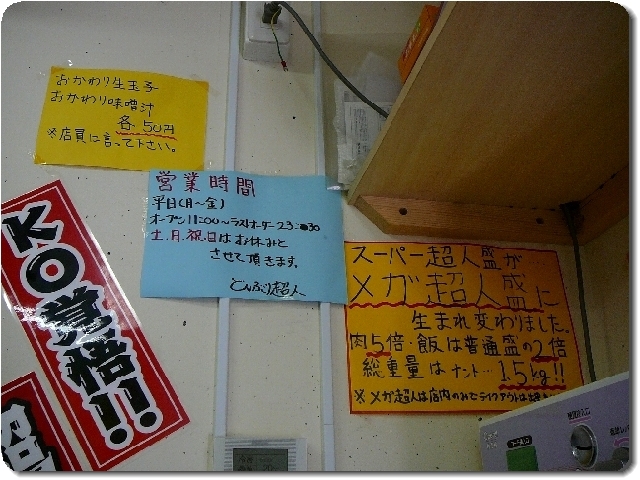 おかわり生玉子
おかわり味噌汁
各 50円
※店員に言って下さい。
営業時間
平日(月〜金)
オープン11:00〜ラストオーダー23:30
土.日.祝日はお休みと
させて頂きます。
どんぶり超人
KO覚悟!!
スーパー超人盛が…
メガ超人盛に
生まれ変わりました。
肉5倍・飯は普通盛の2倍
総重量はナント…1.5kg!!
※メガ超人は店内のみでテイクアウトは